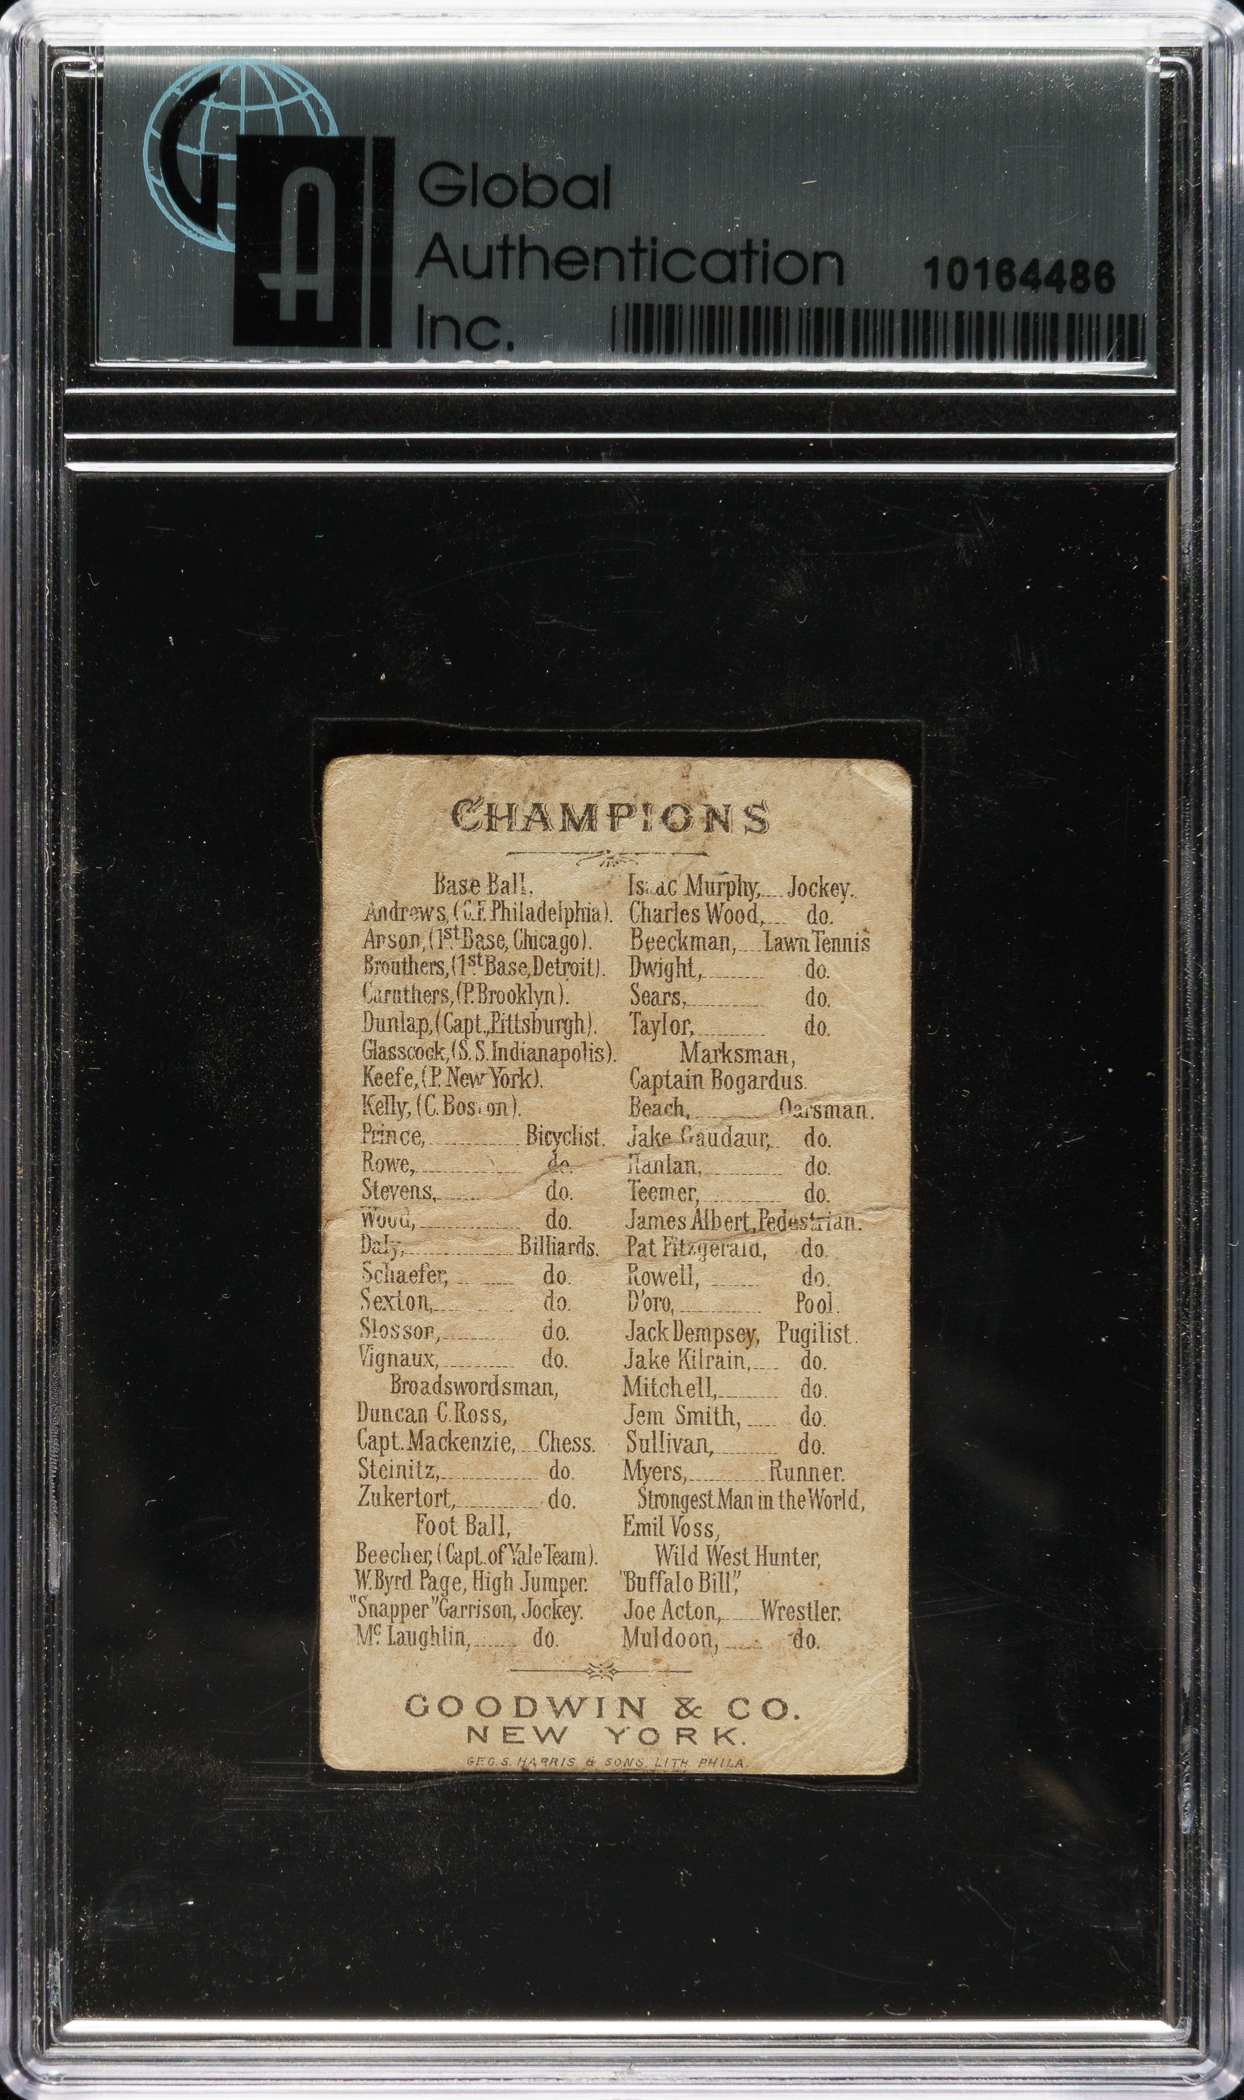 GA
Global
Authentication
Inc.
10164486
CHAMPIONS
Base Ball.
Andrews, (C.F. Philadelphia).
Anson, (1st Base, Chicago).
Brouthers, (1st Base, Detroit).
Caruthers, (P. Brooklyn).
Dunlap, (Capt., Pittsburgh).
Glasscock, (S. S. Indianapolis).
Keefe, (P. New York).
Kelly, (C. Boston).
Prince, Bicyclist.
Rowe, do.
Stevens, do.
Wood, do.
Daly, Billiards.
Schaefer, do.
Sexton, do.
Slosson, do.
Vignaux, do.
Broadswordsman,
Duncan C. Ross,
Capt. Mackenzie, Chess.
Steinitz, do.
Zukertort, do.
Foot Ball,
Beecher, (Capt. of Yale Team).
W. Byrd Page, High Jumper.
"Snapper" Garrison, Jockey.
Mc Laughlin, do.
Isaac Murphy, Jockey.
Charles Wood, do.
Beeckman, Lawn Tennis
Dwight, do.
Sears, do.
Taylor, do.
Marksman,
Captain Bogardus.
Beach, Oarsman.
Jake Gaudaur, do.
Hanlan, do.
Teemer, do.
James Albert, Pedestrian.
Pat Fitzgerald, do.
Rowell, do.
D'oro, Pool.
Jack Dempsey, Pugilist.
Jake Kilrain, do.
Mitchell, do.
Jem Smith, do.
Sullivan, do.
Myers, Runner.
Strongest Man in the World,
Emil Voss,
Wild West Hunter,
"Buffalo Bill",
Joe Acton, Wrestler.
Muldoon, do.
GOODWIN & CO.
NEW YORK.
GEO. S. HARRIS & SONS, LITH. PHILA.